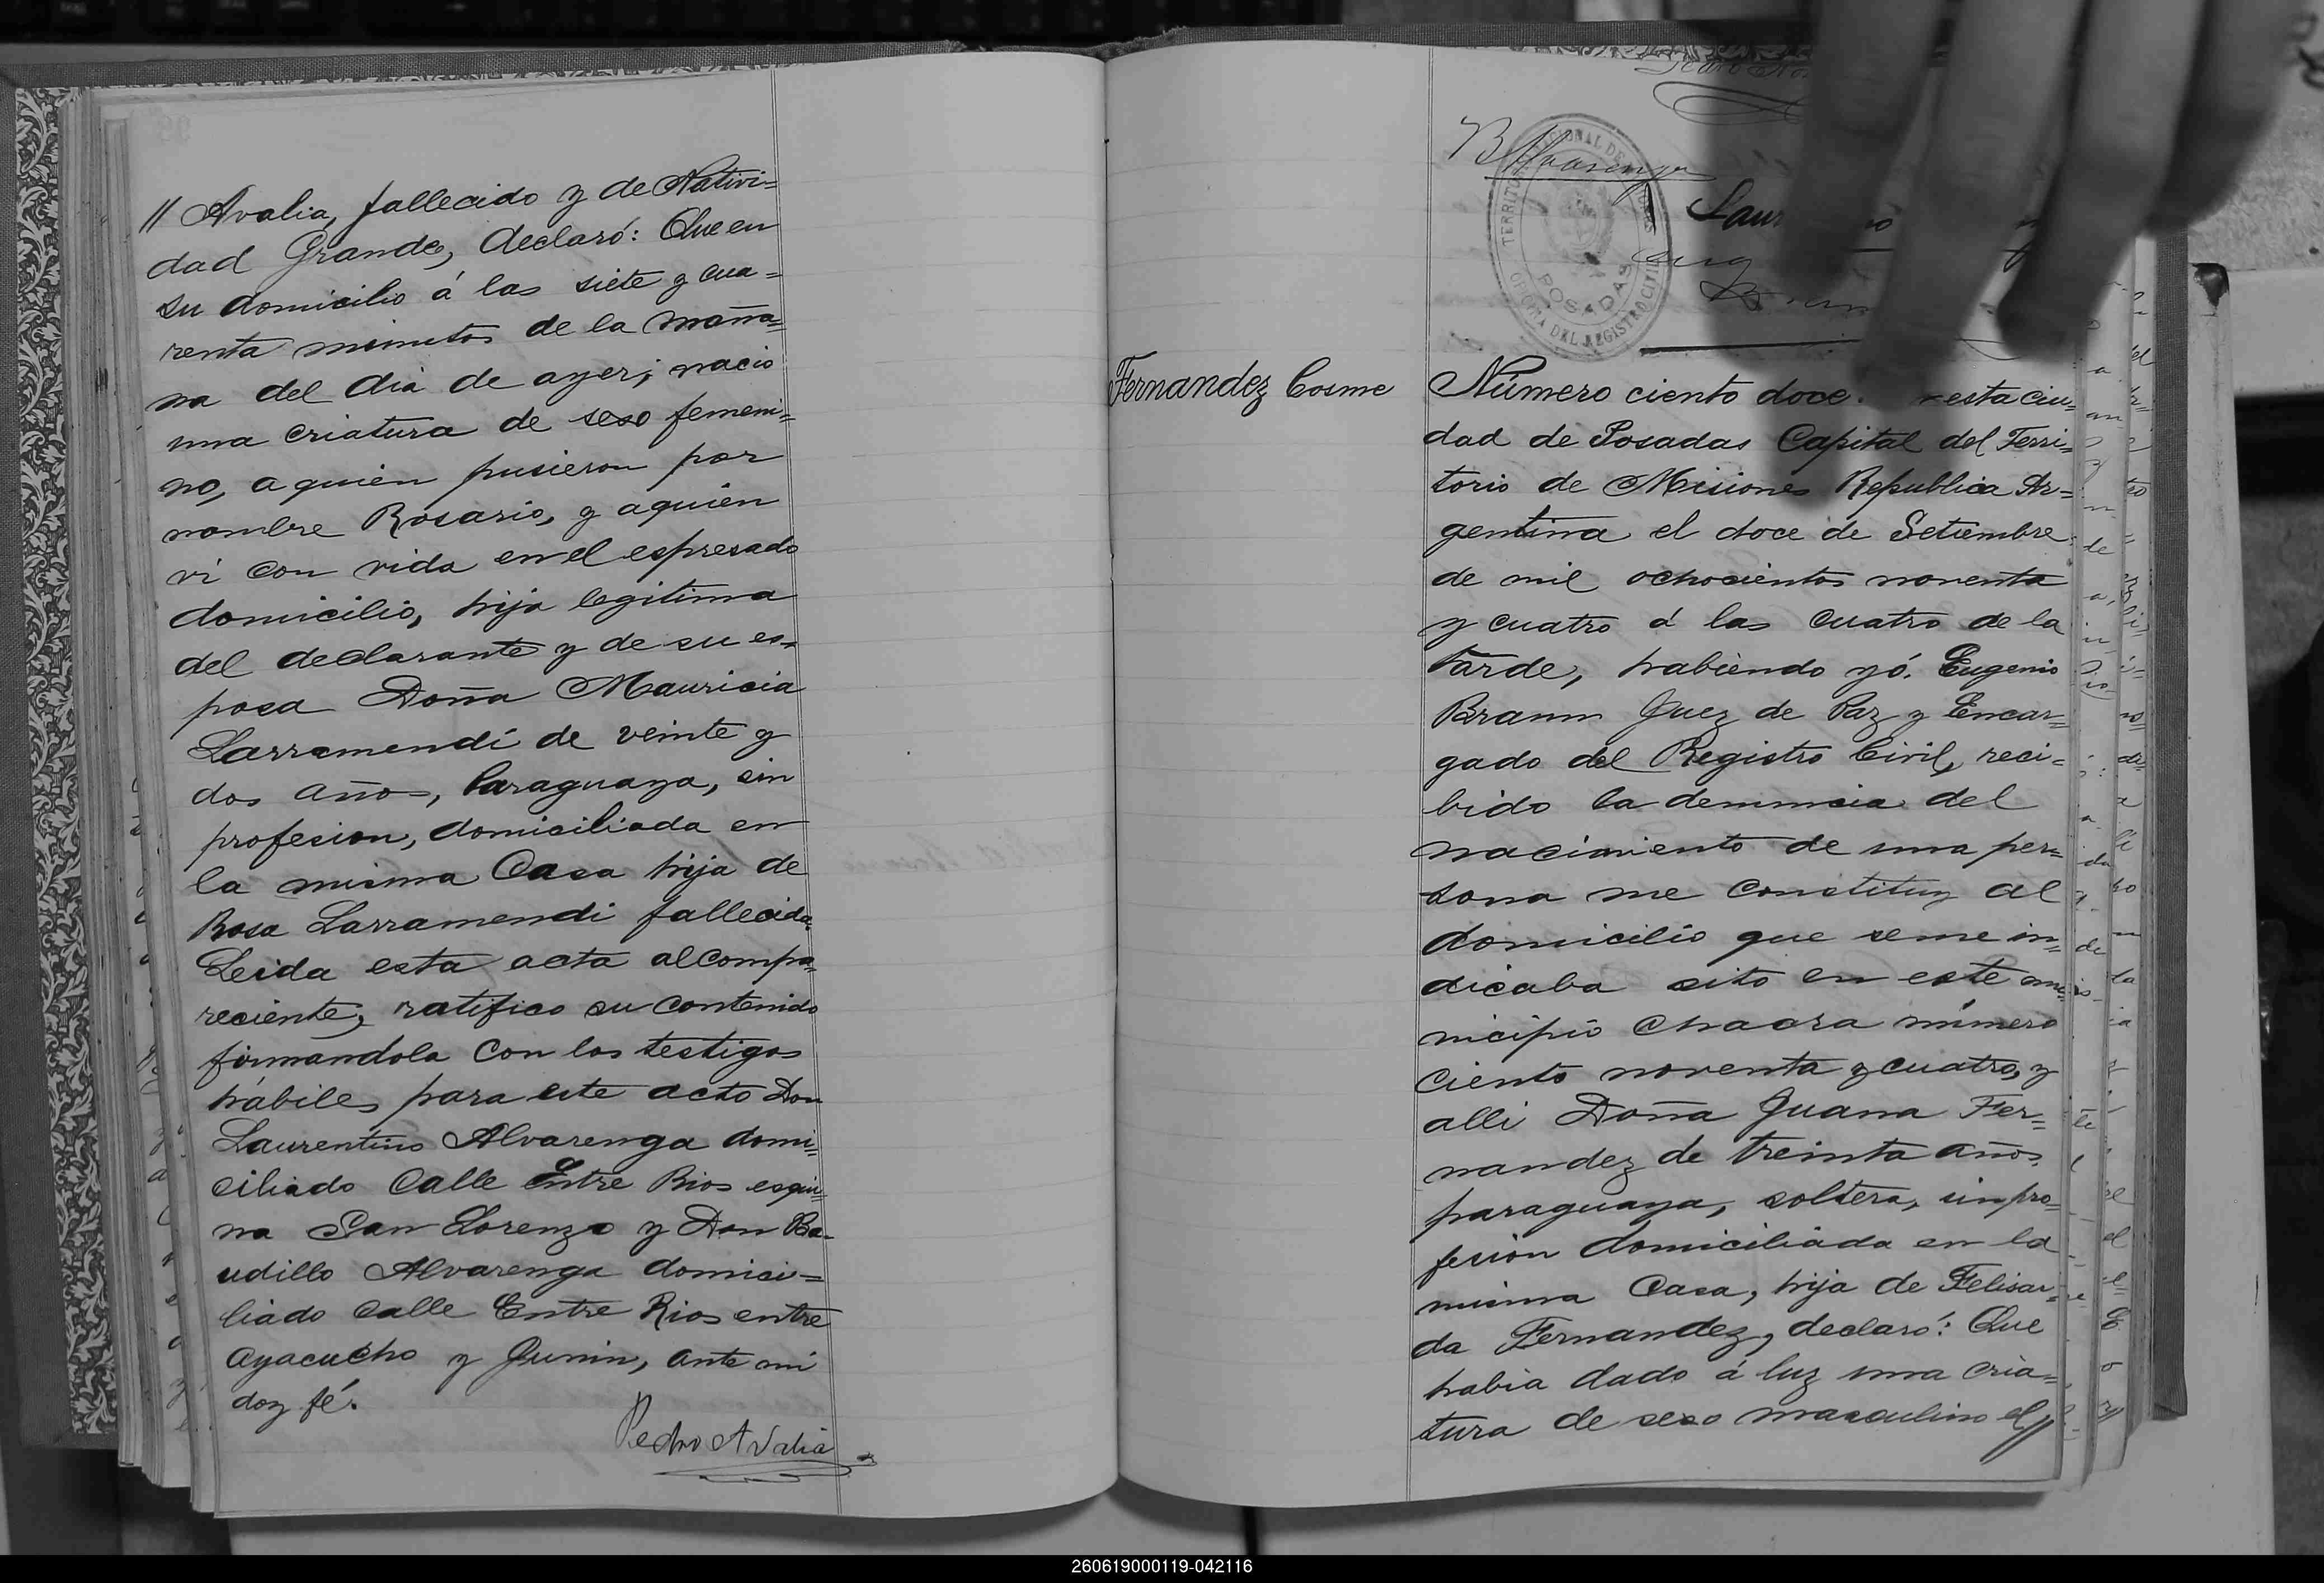 // Avalia, fallecido y de Nativi=
dad Grande, declaró: Que en
su domicilio á las siete y cua=
renta minutos de la maña=
na del dia de ayer; nació
una criatura de sexo femeni=
no, a quien pusieron por
nombre Rosario, y aquien
vi con vida en el espresado
domicilio, hija legitima
del declarante y de su es=
posa Doña Mauricia
Larramendi de veinte y
dos años, Paraguaya, sin
profesion, domiciliada en
la misma Casa hija de
Rosa Larramendi fallecida.
Leida esta acta al Compa=
reciente, ratifico su contenido
firmandola con los testigos
hábiles para este acto Don
Laurentino Alvarenga domi=
ciliado Calle Entre Rios esqui=
na San Lorenzo y Don Ba=
udillo Alvarenga domici=
liado calle Entre Rios entre
Ayacucho y Junin, ante mi
doy fé.
Pedro Avalia
B Alvarenga
TERRITORIO NACIONAL DE MISIONES
POSADAS
OFICINA DEL REGISTRO CIVIL
Fernandez Cosme
Número ciento doce. esta ciu=
dad de Posadas Capital del Terri=
torio de Misiones Republica Ar=
gentina el doce de Setiembre
de mil ochocientos noventa
y cuatro á las cuatro de la
tarde, habiendo yó. Eugenio
Bramm Juez de Paz y Encar=
gado del Registro Civil, reci=
bido la denuncia del
nacimiento de una per=
sona me constituy al
domicilio que se me in=
dicaba sito en este mu=
nicipio Chacra número
ciento noventa y cuatro, y
alli Doña Juana Fer=
nandez de treinta años,
paraguaya, soltera, sin pro=
fesion domiciliada en la
misma Casa, hija de Felisar=
da Fernandez, declaró: Que
habia dado á luz una cria=
tura de sexo masculino el//
260619000119-042116